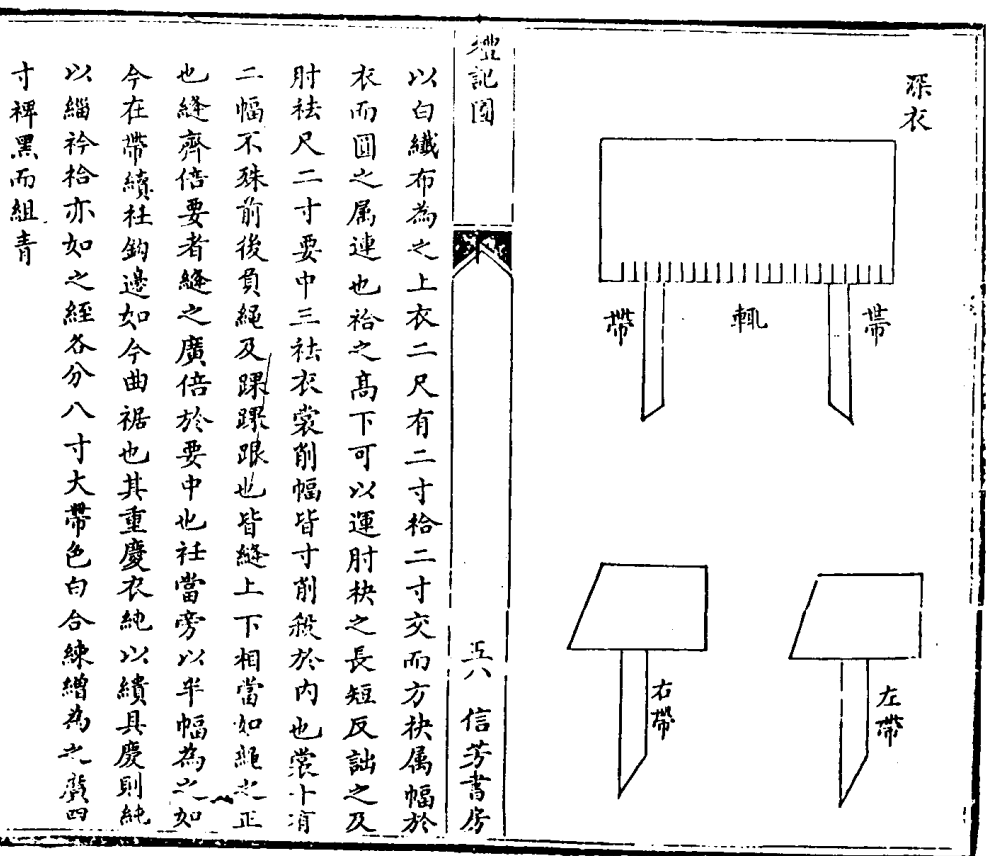 深衣
帶
輒
帶
左帶
右帶
禮記圖
五八
信芳書房
以白纖布為之上衣二尺有二寸袷二寸交而方袂属幅於
衣而圓之属連也袷之高下可以運肘袂之長短反詘之及
肘袪尺二寸要中三袪衣裳削幅皆寸削殺於内也裳十有
二幅不殊前後負繩及踝踝跟也皆縫上下相當如繩之正
也縫齊倍要者縫之廣倍於要中也衽當旁以半幅為之如
今在帶續衽鈎邊如今曲裾也其重慶衣純以繢具慶則純
以緇衿袷亦如之經各分八寸大帶色白合練繒為之廣四
寸裨黑而組青